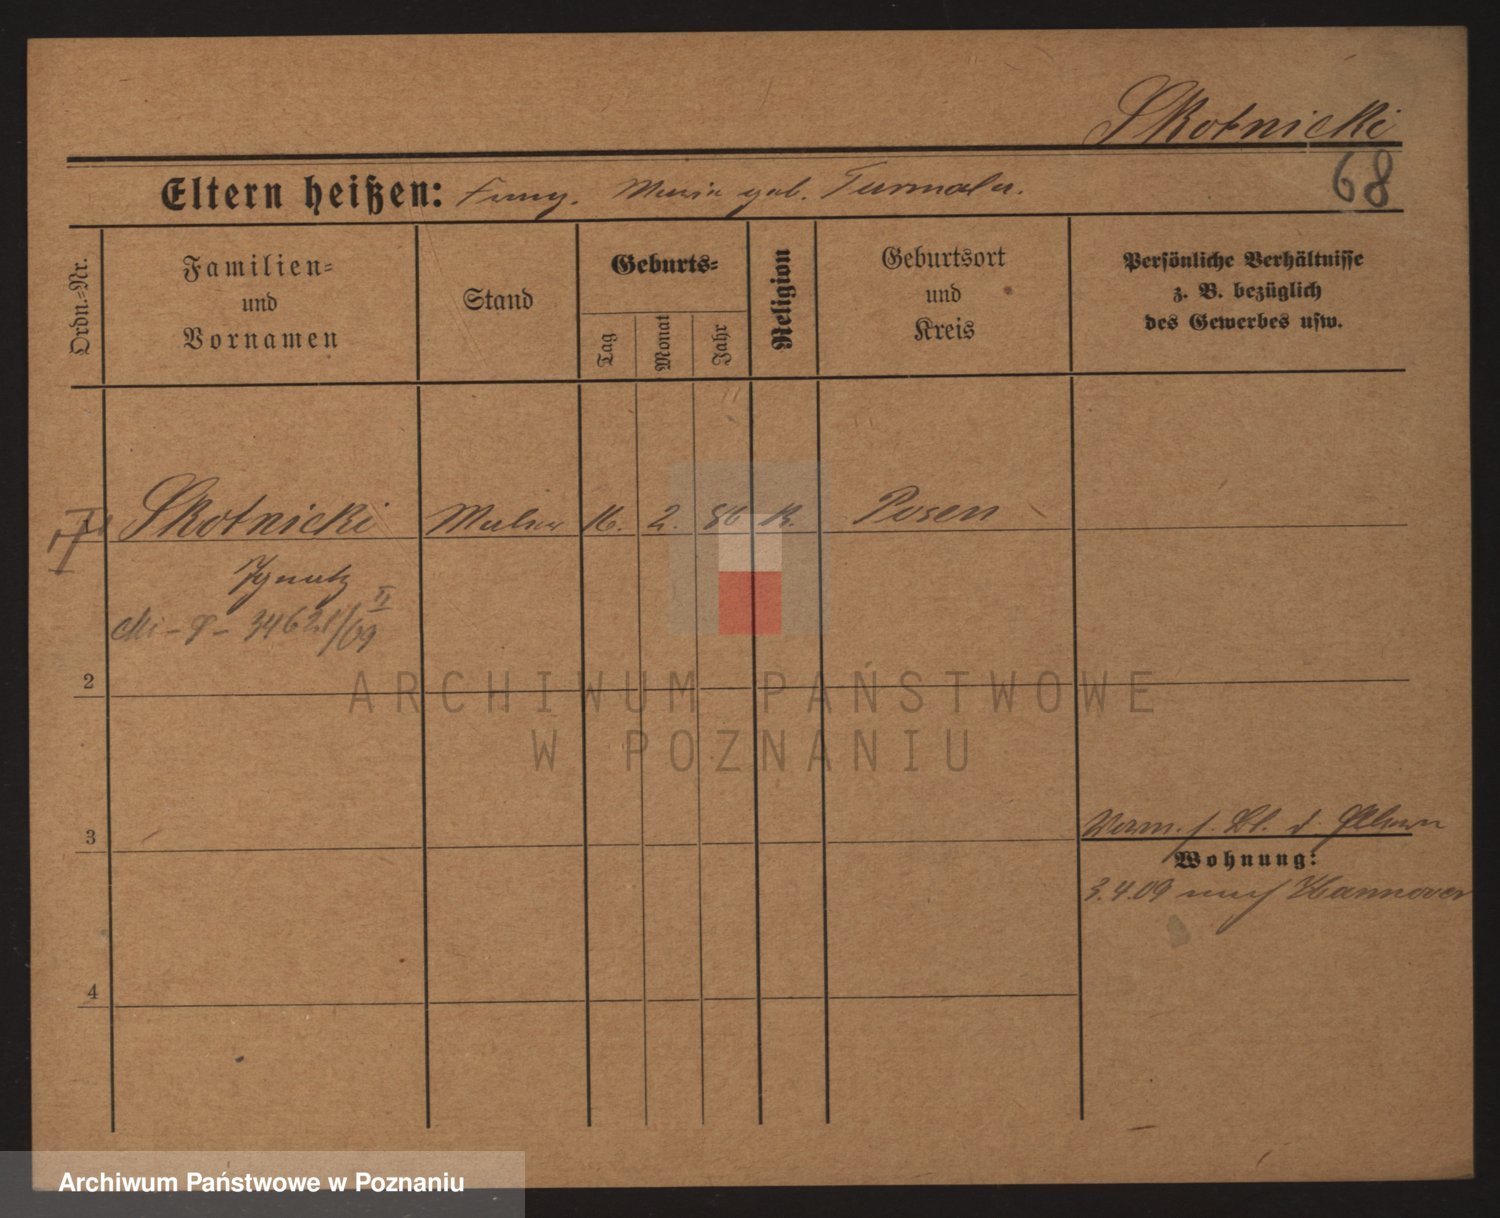 Skotnicki
68
Eltern heißen: Franz. Maria geb. Turmala.
Ordn.=Nr.
Familien=
und
Vornamen
Stand
Geburts=
Tag
Monat
Jahr
Religion
Geburtsort
und
Kreis
Persönliche Verhältnisse
z. B. bezüglich
des Gewerbes usw.
Skotnicki Maler 16. 2. 86 K. Posen
Ignatz
34621/09
II
2
3
4
Wohnung:
3.4.09 nach Hannover
ARCHIWUM PAŃSTWOWE
W POZNANIU
Archiwum Państwowe w Poznaniu